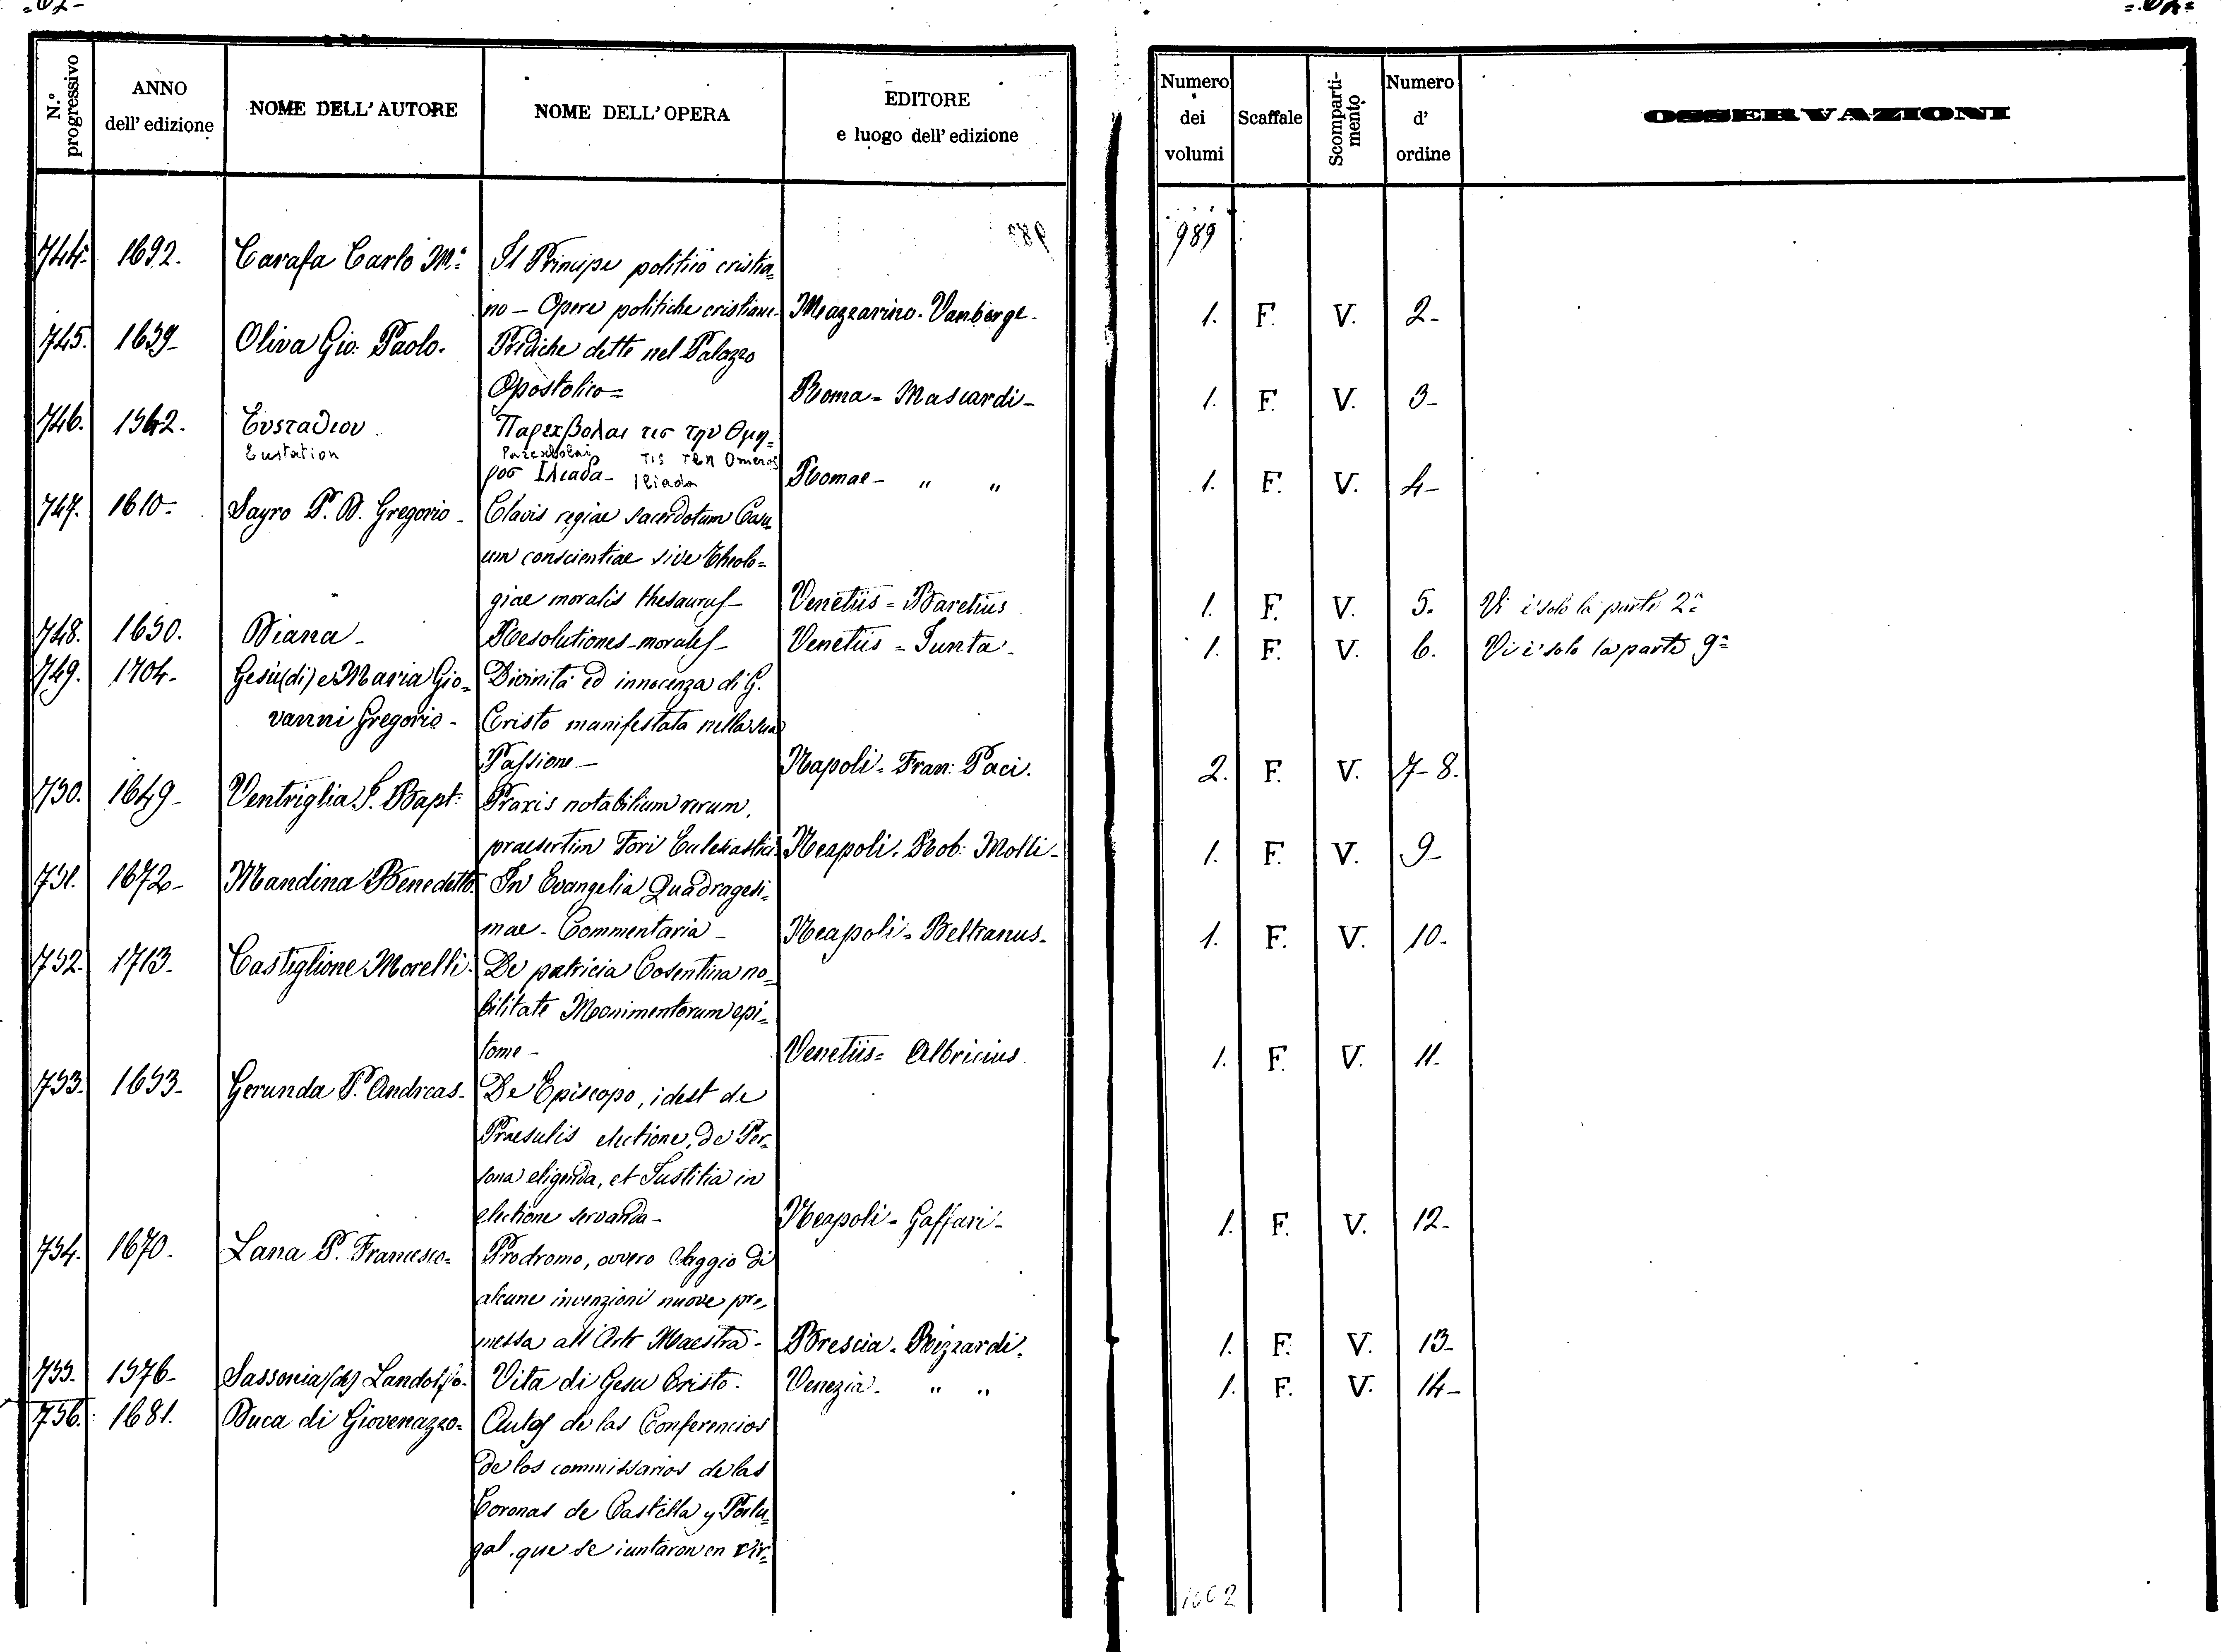 N.° progressivo
ANNO dell' edizione
NOME DELL' AUTORE
NOME DELL' OPERA
EDITORE e luogo dell' edizione
Numero dei volumi
Scaffale
Scomparti-mento
Numero d' ordine
OSSERVAZIONI
989
744. 1692. Carafa Carlo M.ª Il Principe politico cristia=
no – Opere politiche cristiane. Mazzarino. Vanberge. 1. F. V. 2–
745. 1659– Oliva Gio: Paolo. Prediche dette nel Palazzo
Apostolico= Roma= Mascardi– 1. F. V. 3–
746. 1542. Ευσταθιου Παρεκβολαι τισ την Ομη=
Eustation Parexbolai tis ten Omeros
ροσ Ιλιαδα– Iliada Romae– " " 1. F. V. 4–
747. 1610. Sayro P. D. Gregorio– Clavis regiae sacerdotum Casu
um conscientiae sive Theolo=
giae moralis thesaurus– Venetiis= Baretius 1. F. V. 5. Vi è solo la parte 2ª
748. 1650. Diana– Resolutiones morales– Venetiis= Junta. 1. F. V. 6. Vi è solo la parte 9ª
749. 1704. Gesù (di) e Maria Gio= Divinità ed innocenza di G.
vanni Gregorio– Cristo manifestata nella sua
Passione– Napoli= Fran: Paci. 2. F. V. 7–8.
750. 1649– Ventriglia J. Bapt: Praxis notabilium rerum,
praesertim Fori Eclesiastici Neapoli. Rob: Molli– 1. F. V. 9–
751. 1672– Mandina Benedetto In Evangelia Quadragesi=
mae– Commentaria– Neapoli= Beltranus. 1. F. V. 10–
752. 1713. Castiglione Morelli. De patricia Cosentina no=
bilitate Monimentorum epi=
tome– Venetiis= Albricius 1. F. V. 11–
753. 1653– Gerunda P. Andreas. De Episcopo, idest de
Praesulis electione, de Per=
sona eligenda, et Justitia in
electione servanda– Neapoli= Gaffari– 1. F. V. 12–
754. 1670. Lana P. Francesco= Prodromo, ovvero Saggio di
alcune invenzioni nuove pre=
messa all'Arte Maestra– Brescia. Rizzardi. 1. F. V. 13–
755. 1576– Sassonia (de) Landolfo. Vita di Gesu Cristo. Venezia. " " 1. F. V. 14–
756. 1681. Duca di Giovenazzo= Autos de las Conferencios
de los commissarios de las
Coronas de Castilla y Portu=
gal. que se iuntaron en vir=
1002